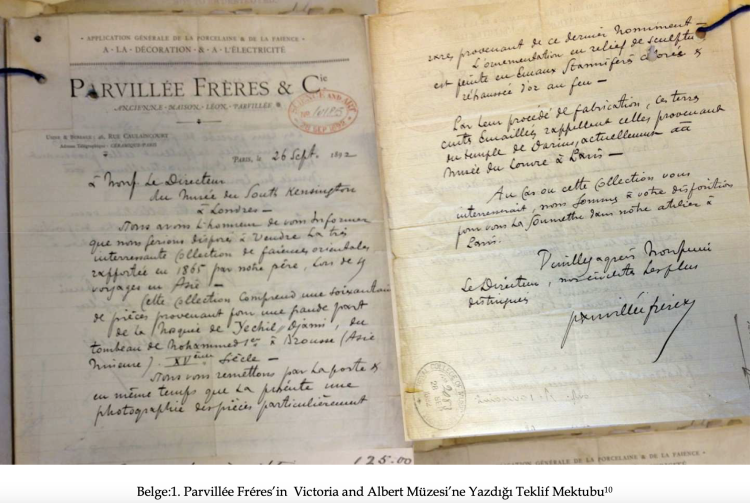 APPLICATION GÉNÉRALE DE LA PORCELAINE & DE LA FAIENCE
A · LA · DÉCORATION · & · A · L'ÉLECTRICITÉ
PARVILLÉE FRÈRES & Cie
ANCIENNE · MAISON · LÉON · PARVILLÉE
SCIENCE AND ART
USINE & BUREAUX : 36, RUE CAULAINCOURT
Adresse Télégraphique : CÉRAMIQUE-PARIS
PARIS, le 26 Sept. 1892
à Monsr Le Directeur
du Musée du South Kensington
à Londres —
Nous avons l'honneur de vous informer
que nous serions disposés à vendre la très
interressante Collection de faïences orientales
rapportée en 1865 par notre père, lors de ses
voyages en Asie —
Cette Collection comprend une soixantaine
de pièces provenant pour une grande part
de la Mosquée de Yechil-Djami, du
tombeau de Mohammed 1er à Brousse (Asie
Mineure). XVème Siècle —
Nous vous remettons par la poste &
en même temps que la présente une
photographie des pièces particulièrement
125.00
rares provenant de ce dernier Monument —
L'ornementation en relief de sculpture
est peinte en Emaux Stannifères colorés &
réhaussée d'or au feu —
Par leur procédé de fabrication, ces terres
cuites Emaillées rappellent celles provenant
du temple de Darius, actuellement au
Musée du Louvre à Paris —
Au Cas où cette Collection vous
interresserait, nous sommes à votre disposition
pour vous la soumettre dans notre atelier à
Paris.
Veuillez agréer Monsieur
Le Directeur, nos sincères les plus
distingués
Parvillée frères
A LA FAIENCE
Belge:1. Parvillée Fréres'in Victoria and Albert Müzesi'ne Yazdığı Teklif Mektubu¹⁰